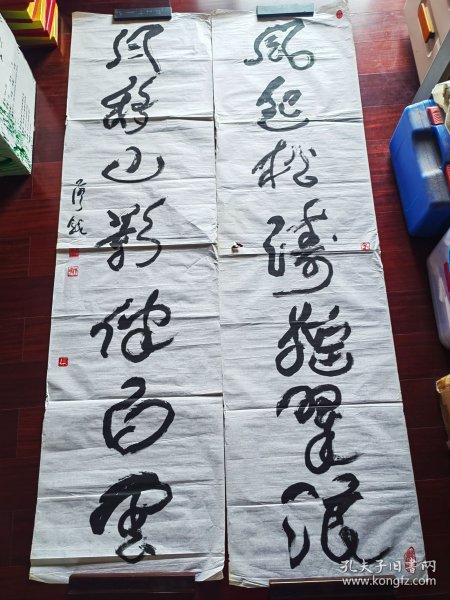 風起松濤搖翠浪
月移山影伴白雲
孔夫子旧书网
www.kongfz.com